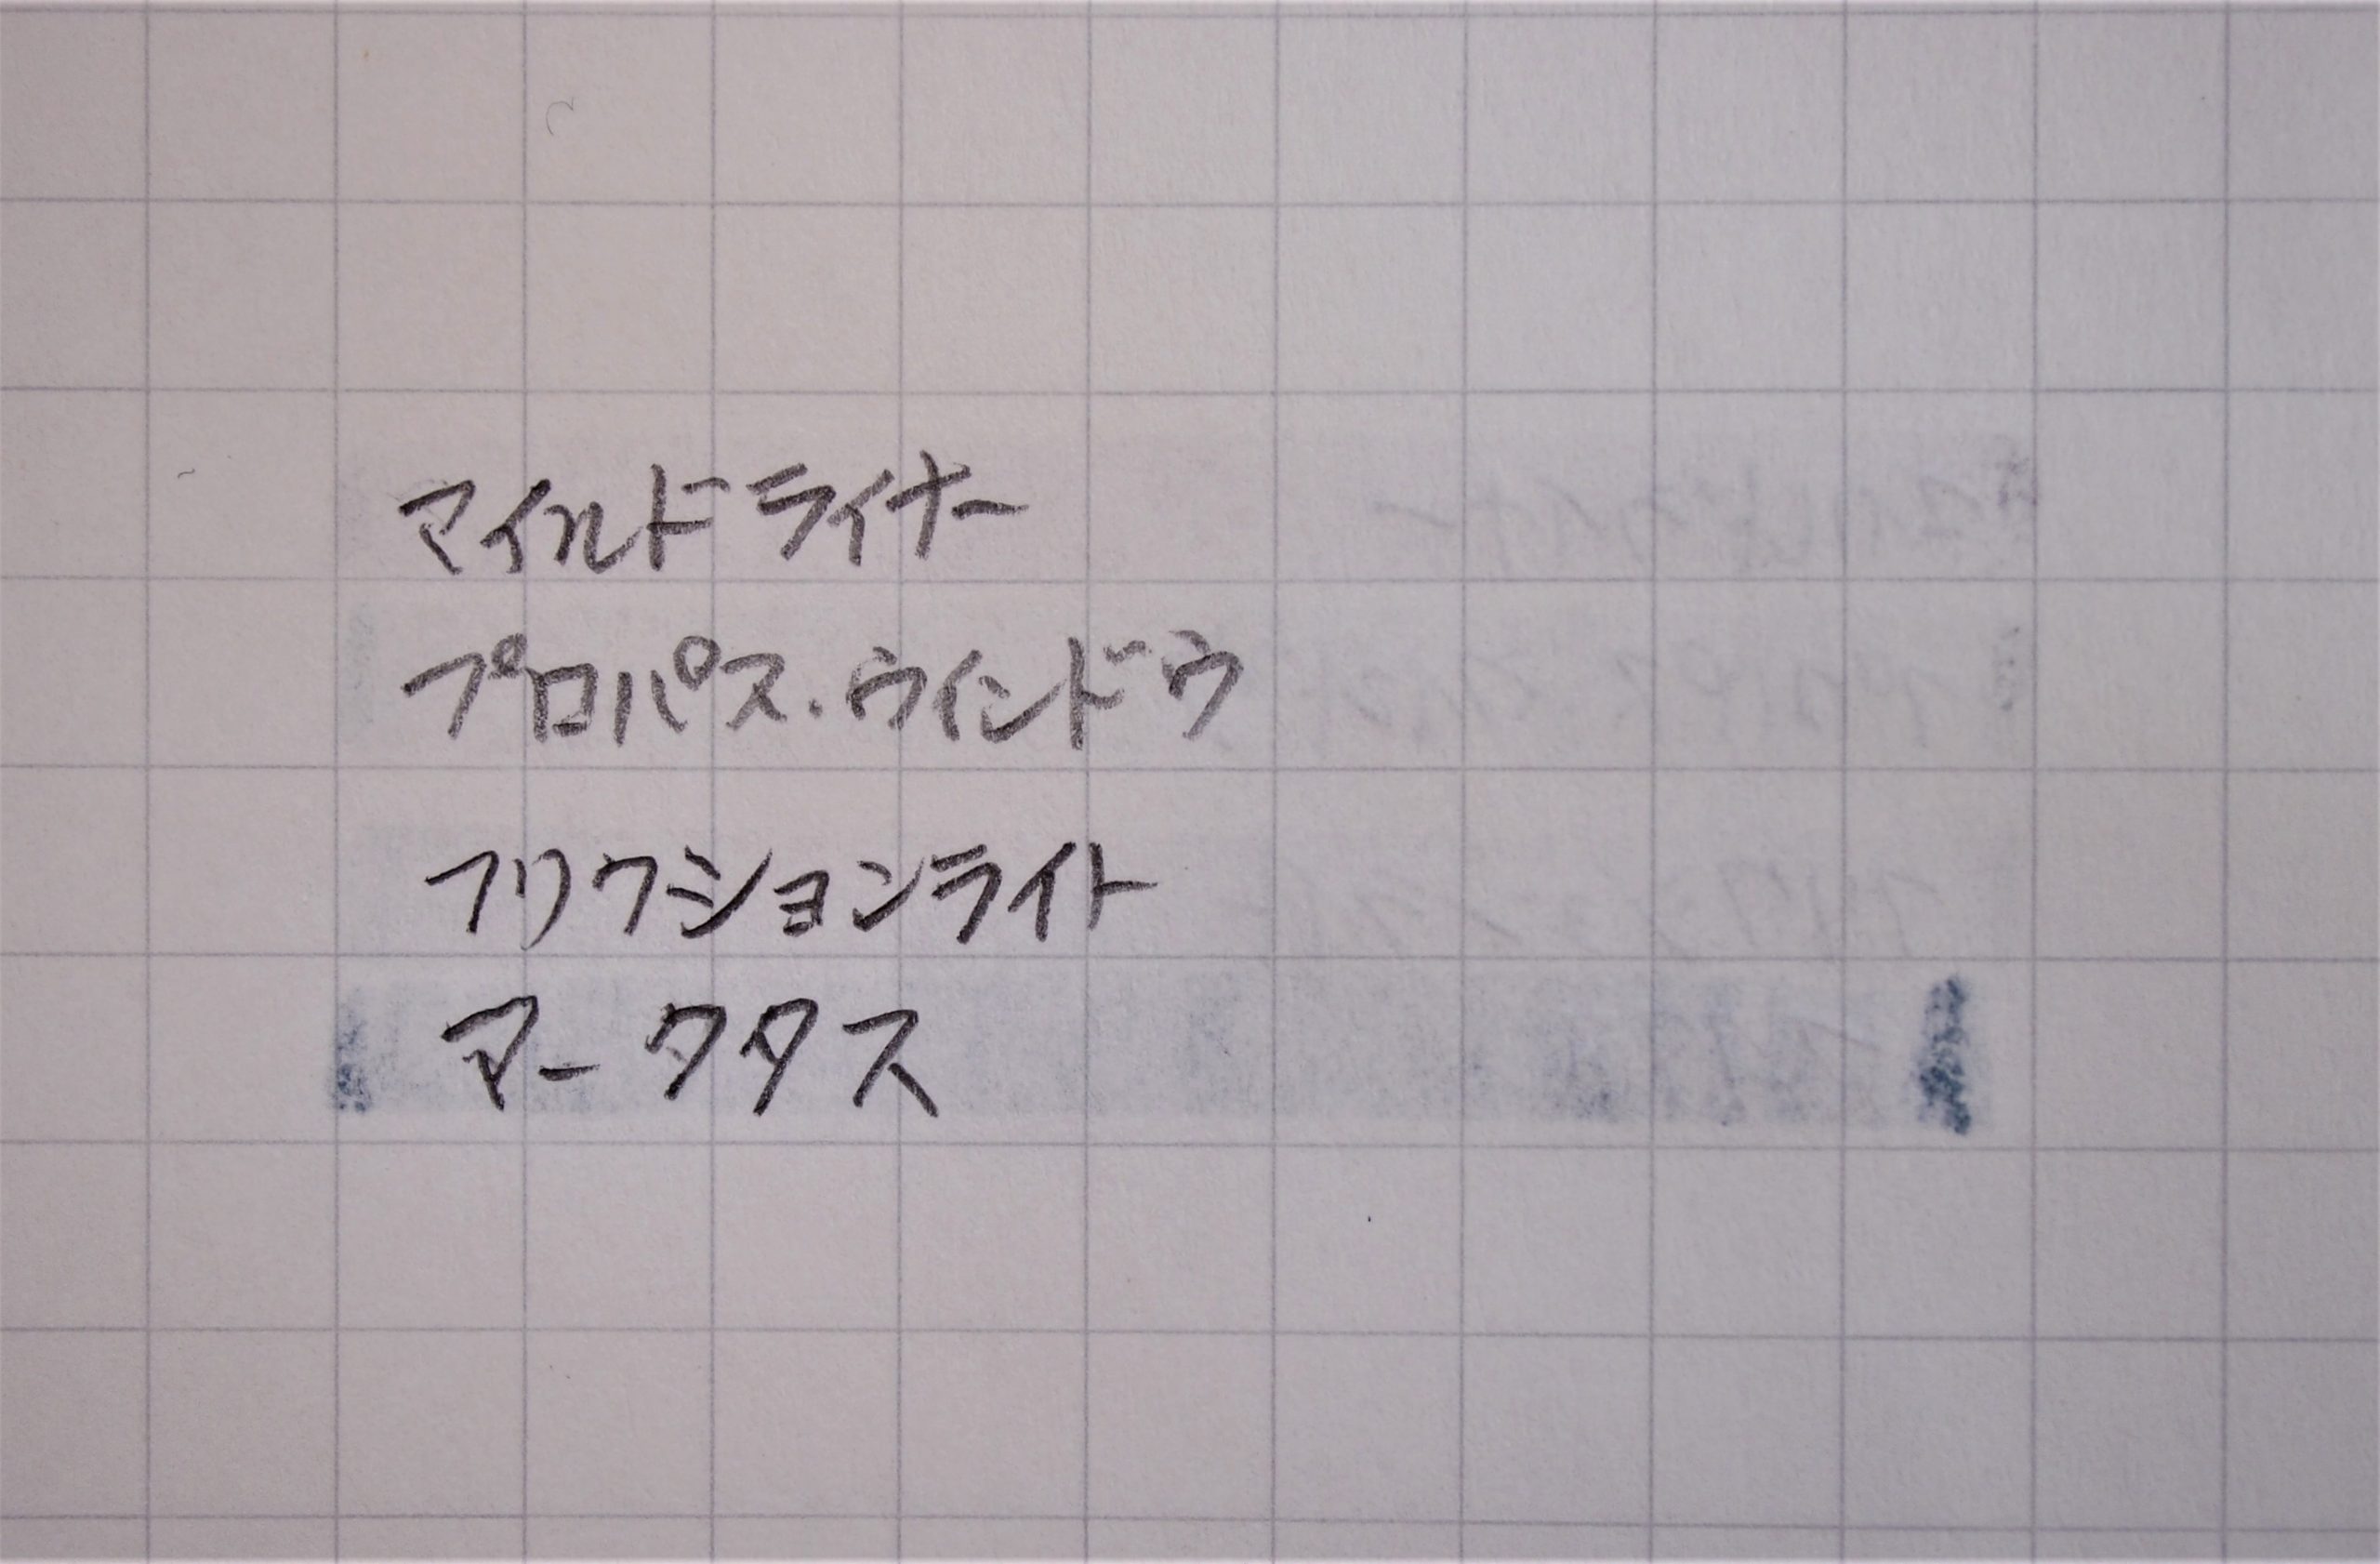 マイルドライナー
プロパス・ウインドウ
フリクションライト
マークタス